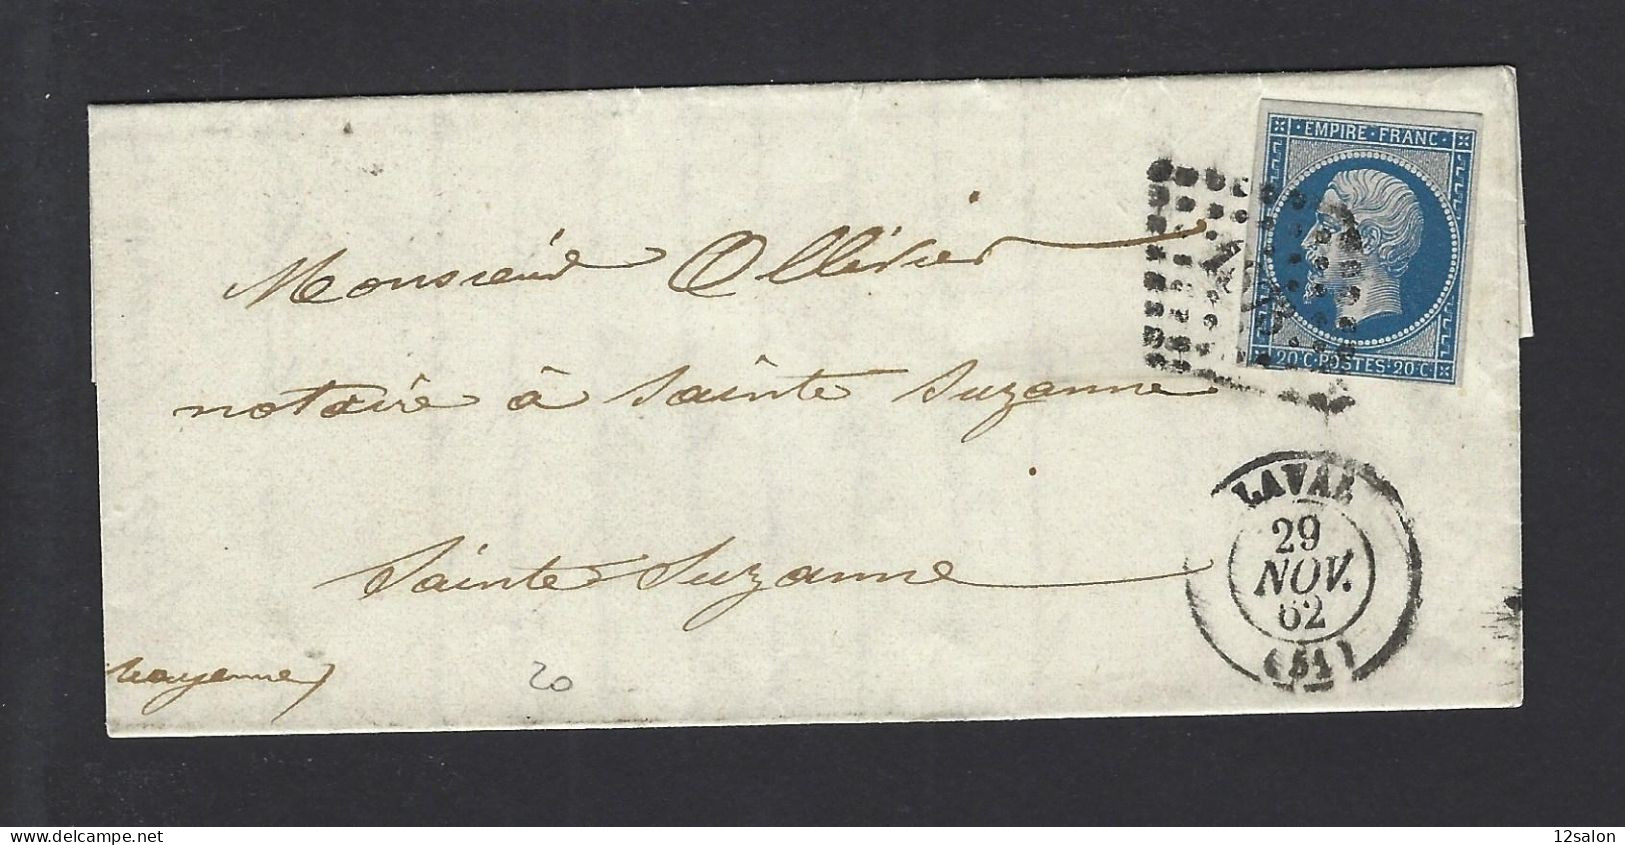 EMPIRE · FRANC ·
20 C · POSTES · 20 C
Monsieur Ollivier
notaire à Sainte Suzanne
Sainte Suzanne
Mayenne)
20
LAVAL
29
NOV.
62
(51)
www.delcampe.net
12salon